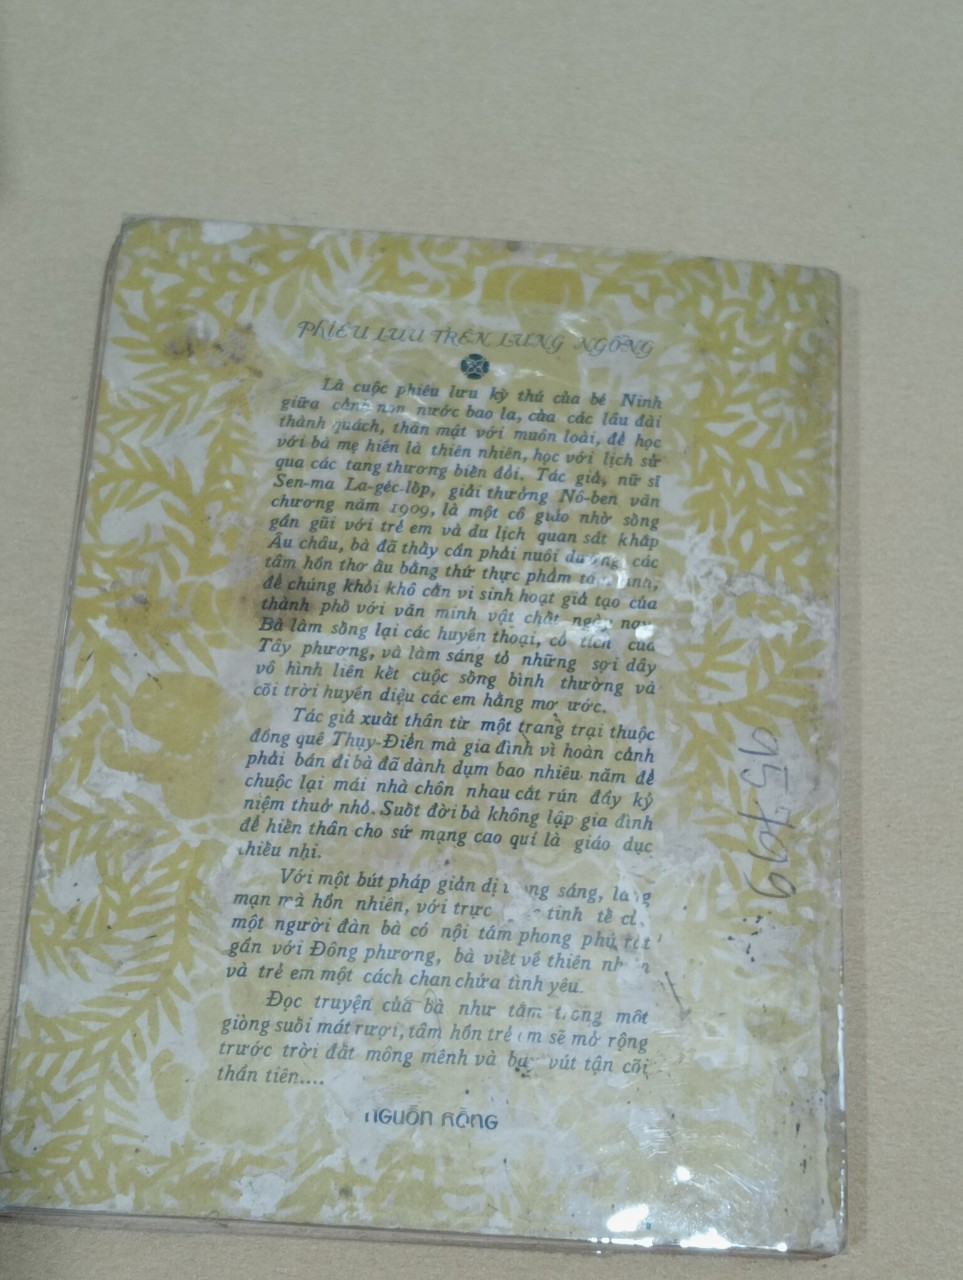 PHIÊU LƯU TRÊN LƯNG NGỖNG
Là cuộc phiêu lưu kỳ thú của bé Ninh
giữa cảnh non nước bao la, của các lâu đài
thành quách, thân mật với muôn loài, để học
với bà mẹ hiền là thiên nhiên, học với lịch sử
qua các tang thương biến đổi. Tác giả, nữ sĩ
Sen-ma La-géc-lốp, giải thưởng Nô-ben văn
chương năm 1909, là một cô giáo nhờ sống
gần gũi với trẻ em và du lịch quan sát khắp
Âu châu, bà đã thấy cần phải nuôi dưỡng các
tâm hồn thơ ấu bằng thứ thực phẩm
để chúng khỏi khô cằn vì sinh hoạt giả tạo của
thành phố với văn minh vật chất ngày nay.
Bà làm sống lại các huyền thoại, cổ tích của
Tây phương, và làm sáng tỏ những sợi dây
vô hình liên kết cuộc sống bình thường và
cõi trời huyền diệu các em hằng mơ ước.
Tác giả xuất thân từ một trang trại thuộc
đồng quê Thụy-Điển mà gia đình vì hoàn cảnh
phải bán đi bà đã dành dụm bao nhiêu năm để
chuộc lại mái nhà chôn nhau cắt rún đầy kỷ
niệm thuở nhỏ. Suốt đời bà không lập gia đình
để hiến thân cho sứ mạng cao quí là giáo dục
thiếu nhi.
Với một bút pháp giản dị sáng,
mạn mà hồn nhiên, với trực tinh tế
một người đàn bà có nội tâm phong phú, rất
gần với Đông phương, bà viết về thiên
và trẻ em một cách chan chứa tình yêu.
Đọc truyện của bà như tắm trong một
giòng suối mát rượi, tâm hồn trẻ em sẽ mở rộng
trước trời đất mông mênh và bay vút tận cõi
thần tiên....
NGUỒN HỒNG